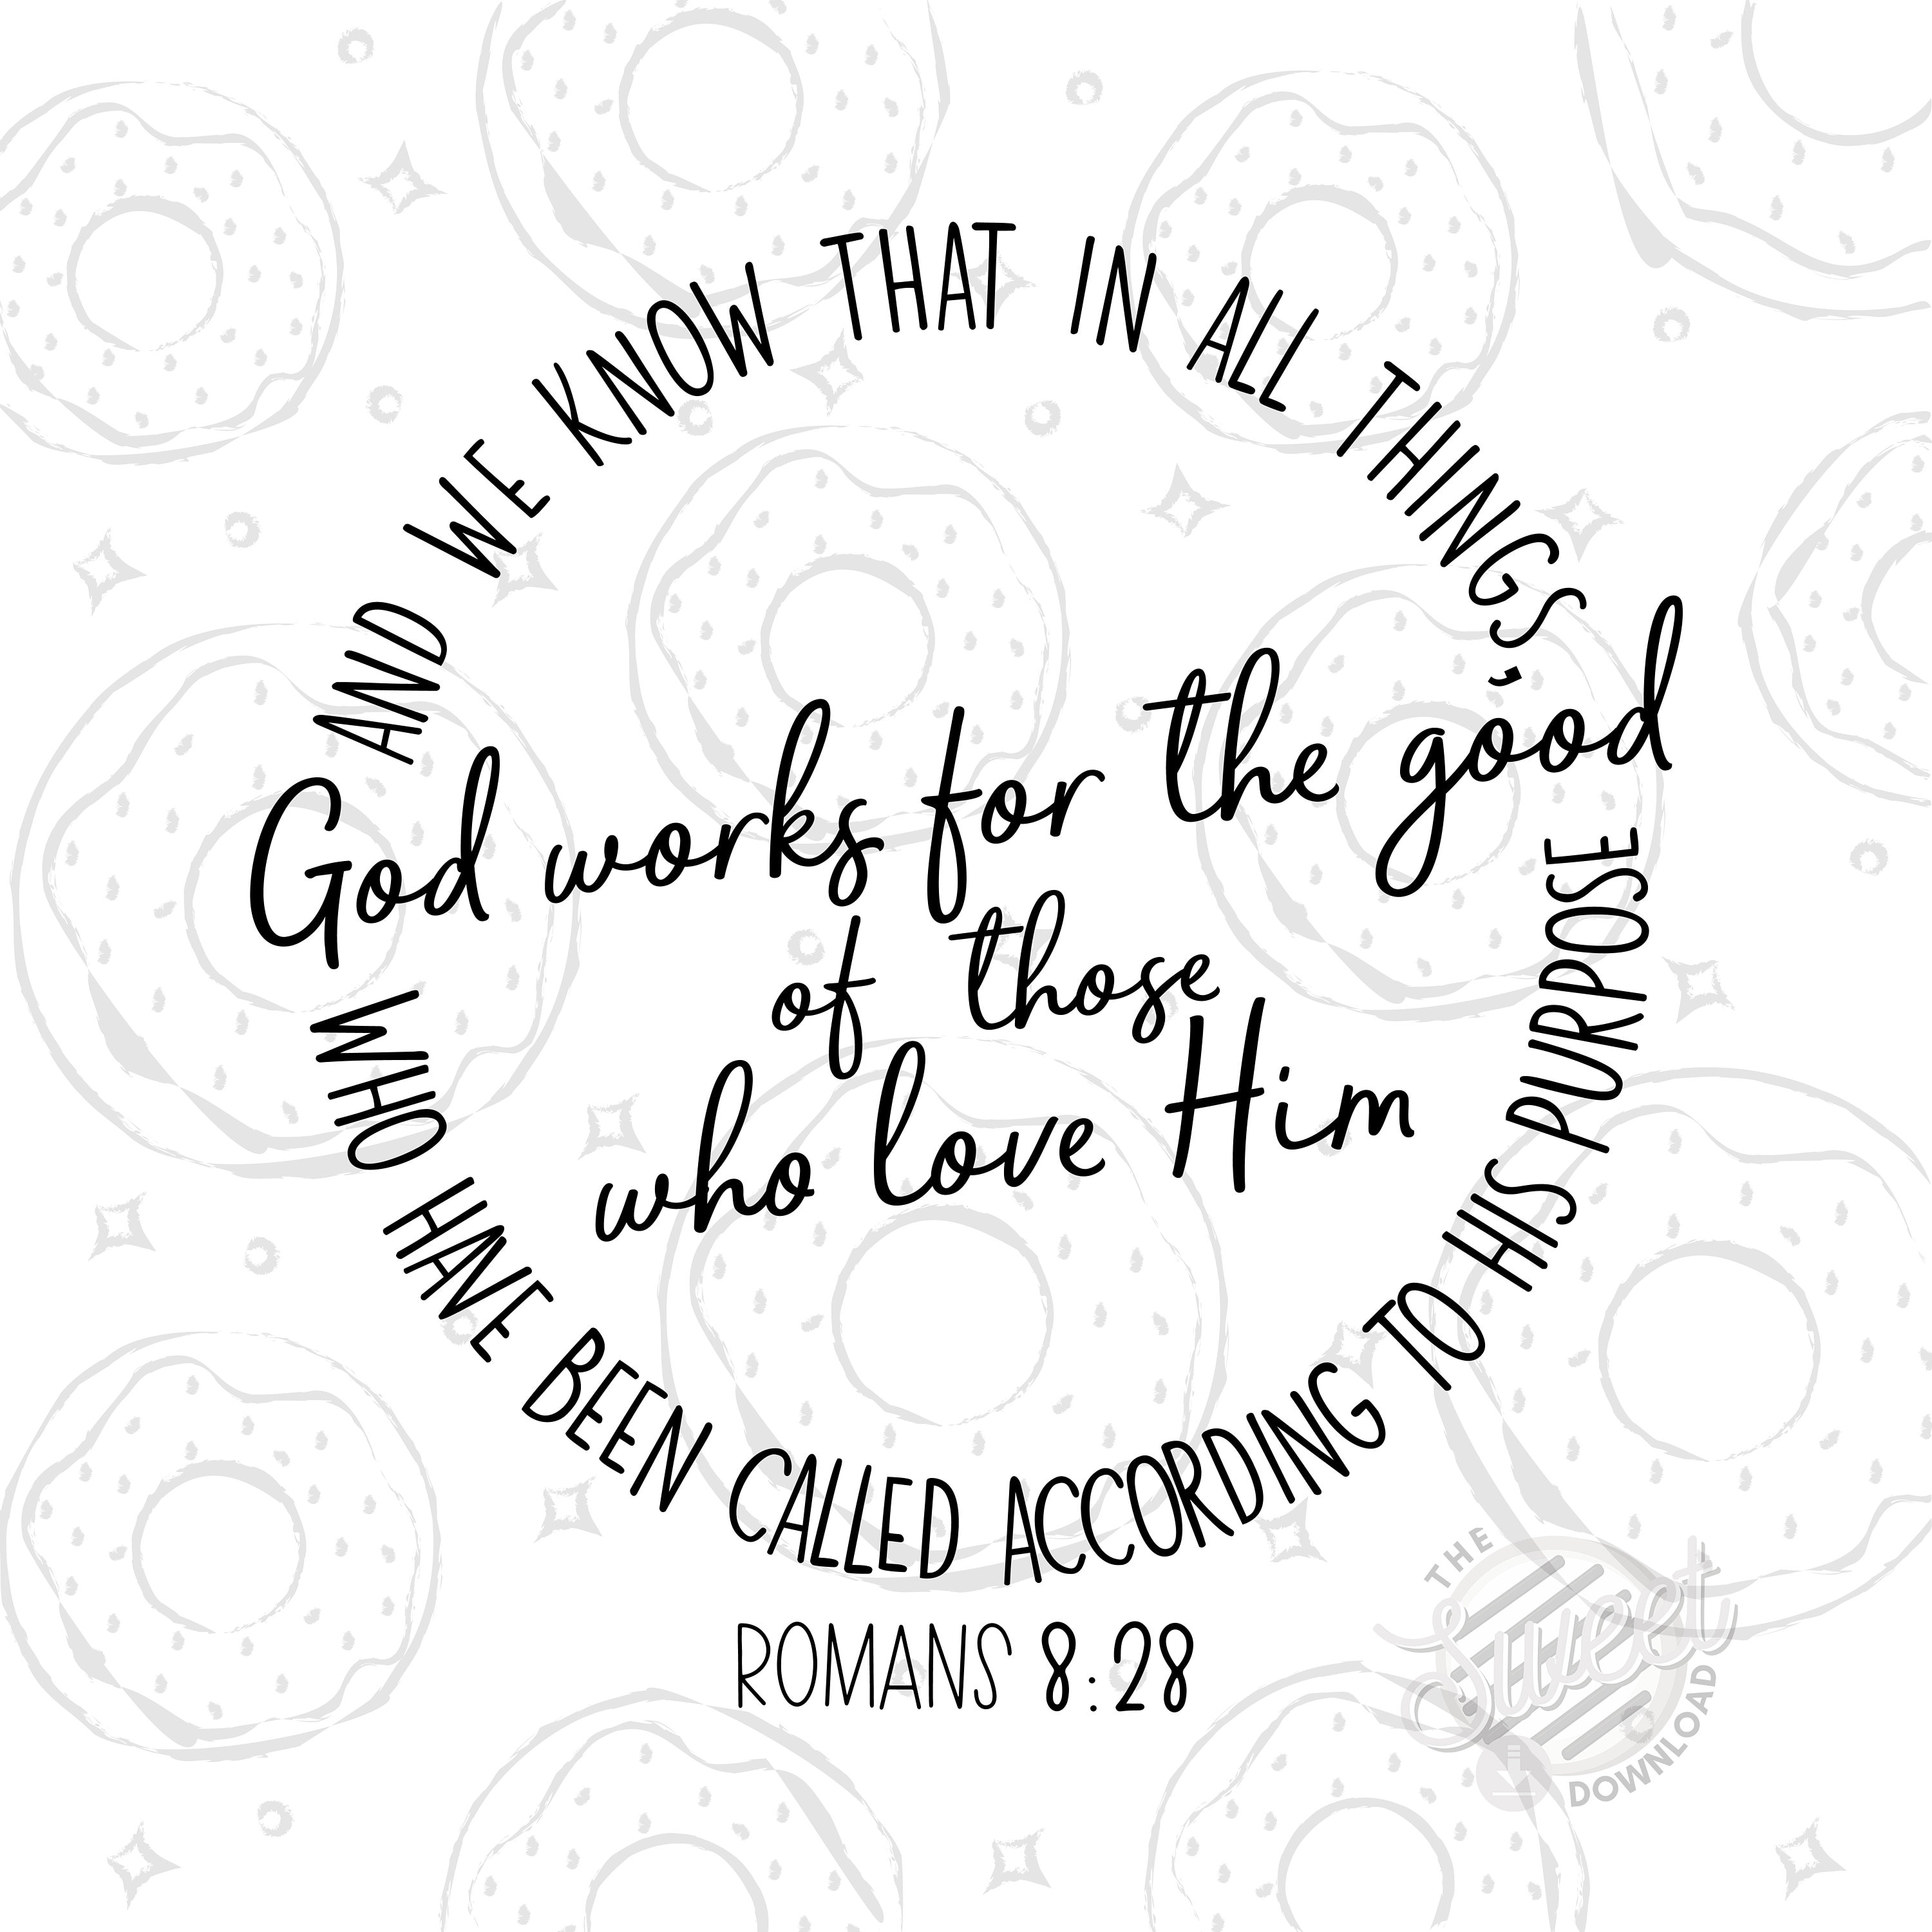 AND WE KNOW THAT IN ALL THINGS,
God works for the good
of those
who love Him
WHO HAVE BEEN CALLED ACCORDING TO HIS PURPOSE
ROMANS 8:28
THE
Sweet
DOWNLOAD